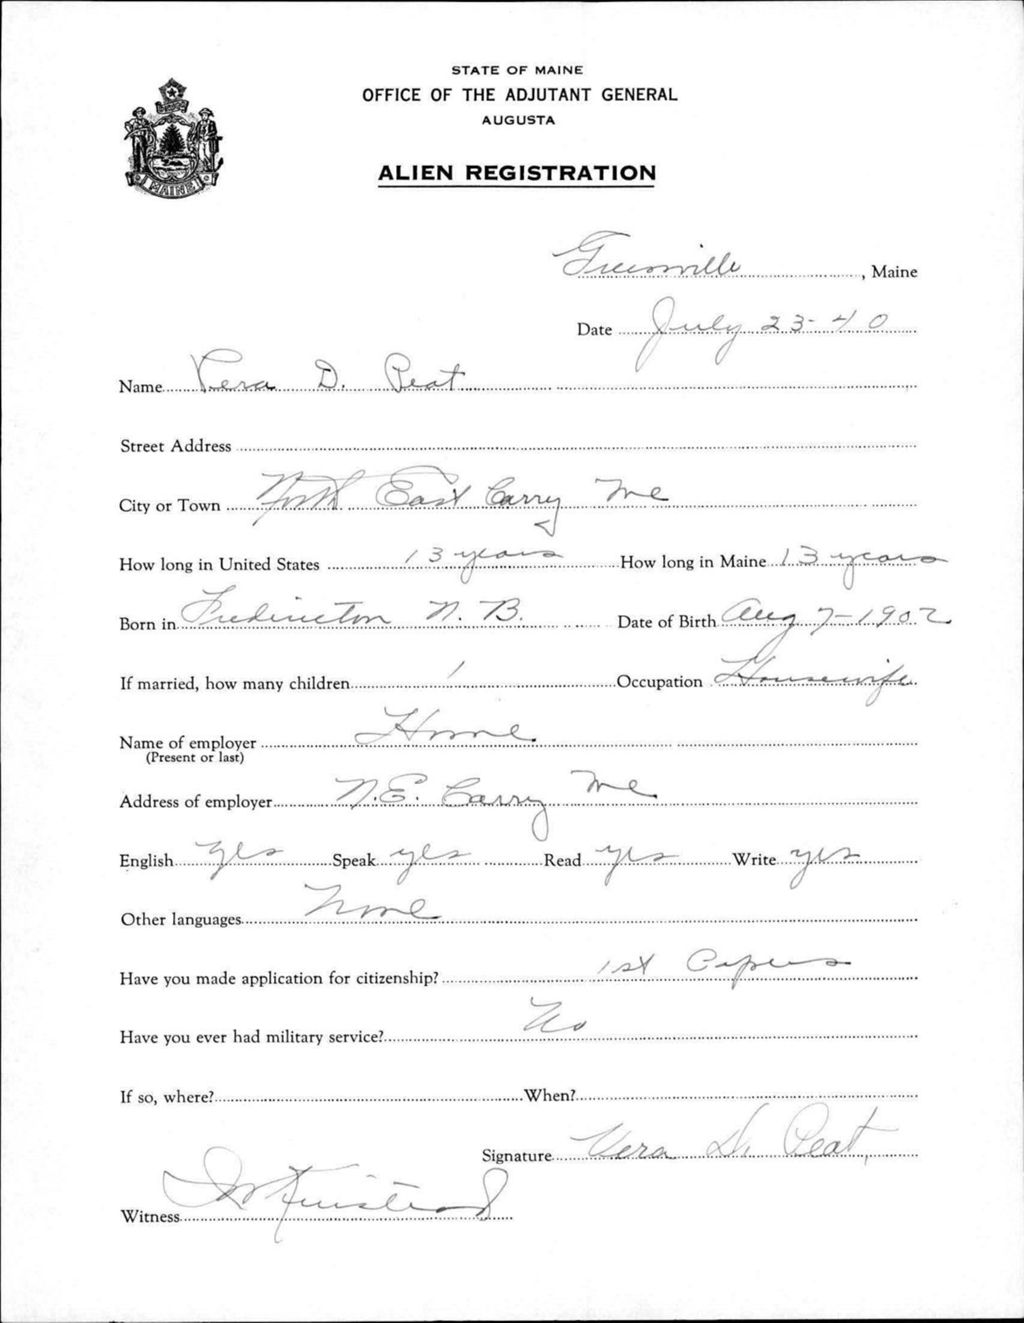 STATE OF MAINE
OFFICE OF THE ADJUTANT GENERAL
AUGUSTA
ALIEN REGISTRATION
MAINE
Greenville, Maine
Date July 23-40
Name Vera D. Peat
Street Address
City or Town North East Carry Me
How long in United States 13 years How long in Maine 13 years
Born in Fredericton N. B. Date of Birth Aug 7-1902
If married, how many children 1 Occupation Housewife
Name of employer Home.
(Present or last)
Address of employer N.E. Carry Me
English yes Speak yes Read yes Write yes
Other languages None
Have you made application for citizenship? 1st Papers
Have you ever had military service? No
If so, where? When?
Signature Vera D. Peat
Witness